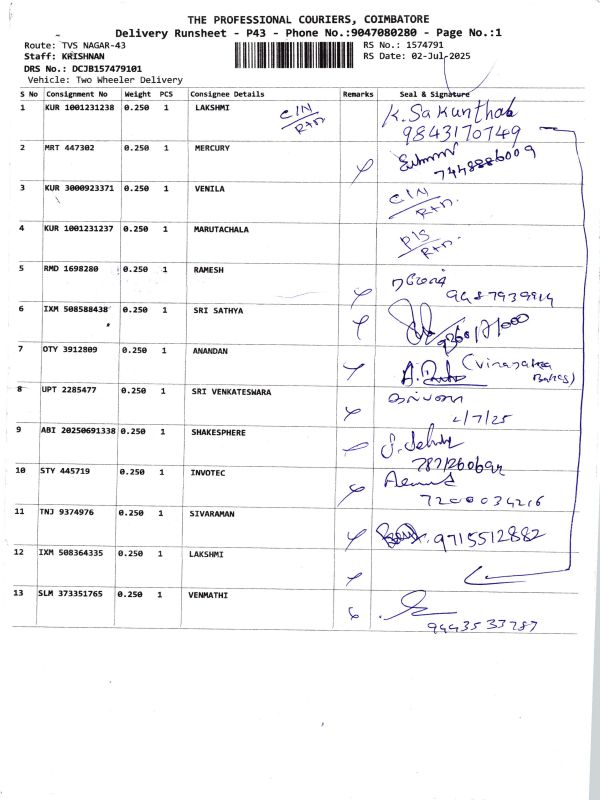 THE PROFESSIONAL COURIERS, COIMBATORE
Delivery Runsheet - P43 - Phone No.:9047080280 - Page No.:1
Route: TVS NAGAR-43 RS No.: 1574791
Staff: KRISHNAN RS Date: 02-Jul-2025
DRS No.: DCJB157479101
Vehicle: Two Wheeler Delivery
S No Consignment No Weight PCS Consignee Details Remarks Seal & Signature
1 KUR 1001231238 0.250 1 LAKSHMI C/N Rtn K. Sakunthala
9843170749
2 MRT 447302 0.250 1 MERCURY 7448886009
3 KUR 3000923371 0.250 1 VENILA C/N Rtn.
4 KUR 1001231237 0.250 1 MARUTACHALA P/S Rtn.
5 RMD 1698280 0.250 1 RAMESH ரமேஷ்
9487939914
6 IXM 508588438 0.250 1 SRI SATHYA
7 OTY 3912809 0.250 1 ANANDAN (Vinayaga
8 UPT 2285477 0.250 1 SRI VENKATESWARA
2/7/25
9 ABI 20250691338 0.250 1 SHAKESPHERE
10 STY 445719 0.250 1 INVOTEC
7200034216
11 TNJ 9374976 0.250 1 SIVARAMAN 9715512882
12 IXM 508364335 0.250 1 LAKSHMI
13 SLM 373351765 0.250 1 VENMATHI
9443533787